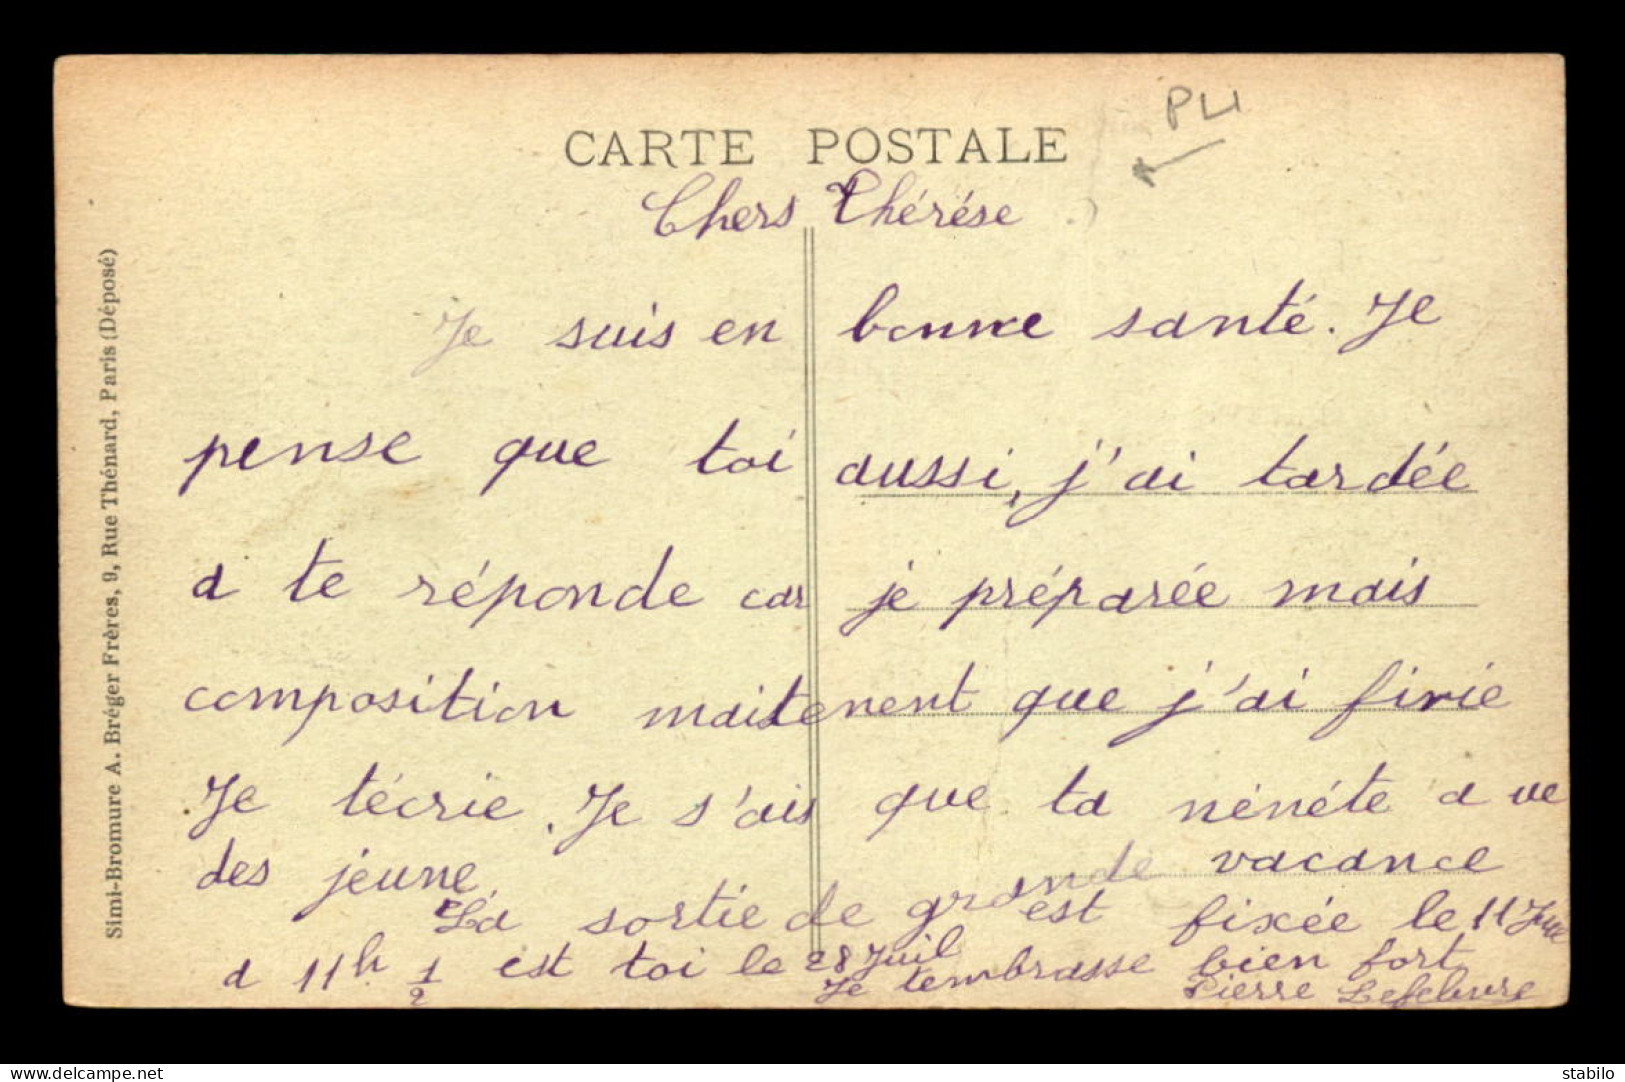 PLI
CARTE POSTALE
Chers Thérése
Je suis en bonne santé. Je
pense que toi aussi, j'ai tardée
a te réponde car je préparée mais
composition maitenent que j'ai finie
Je técrie. Je s'ais que ta nénéte a ue
des jeune.
La sortie de grande vacance est fixée le 11 Juil
a 11h 1/2 est toi le 28 Juil
Je tembrasse bien fort
Pierre Lefebvre
Simi-Bromure A. Bréger Frères, 9, Rue Thénard, Paris (Déposé)
www.delcampe.net
stabilo